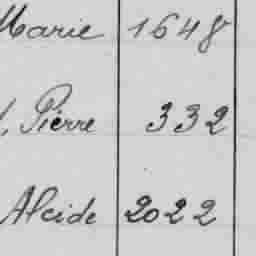 Marie 1648
Pierre 332
Alcide 2022